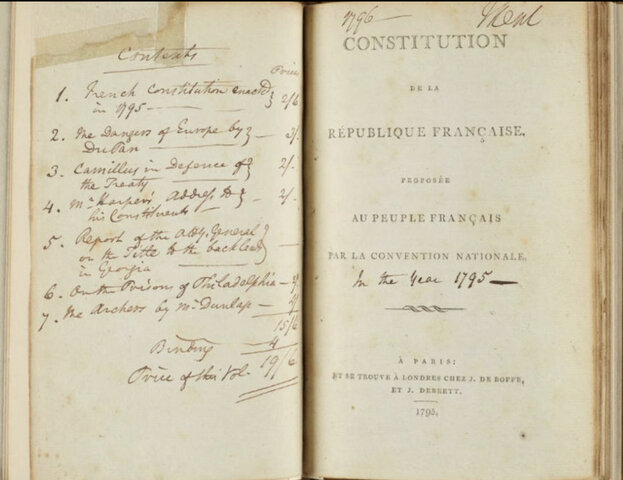 Contents
Price
1. French Constitution enacted
in 1795 — 2/6
2. The Dangers of Europe by
Du Pan — 3/.
3. Camillus in Defence of
the Treaty 2/.
4. Mr Harper's Address to
his Constituents — 2/.
5. Report of the Atty. General
on the Title to the back lands
in Georgia
6. On the Prisons of Philadelphia —
7. The Archers by Mr Dunlap —
15/6
Binding 4
Price of this Vol. 19/6
1796 — Kent
CONSTITUTION
DE LA
RÉPUBLIQUE FRANÇAISE,
PROPOSÉE
AU PEUPLE FRANÇAIS
PAR LA CONVENTION NATIONALE,
In the Year 1795 —
À PARIS:
ET SE TROUVE À LONDRES CHEZ J. DE BOFFE,
ET J. DEBRETT.
1795.